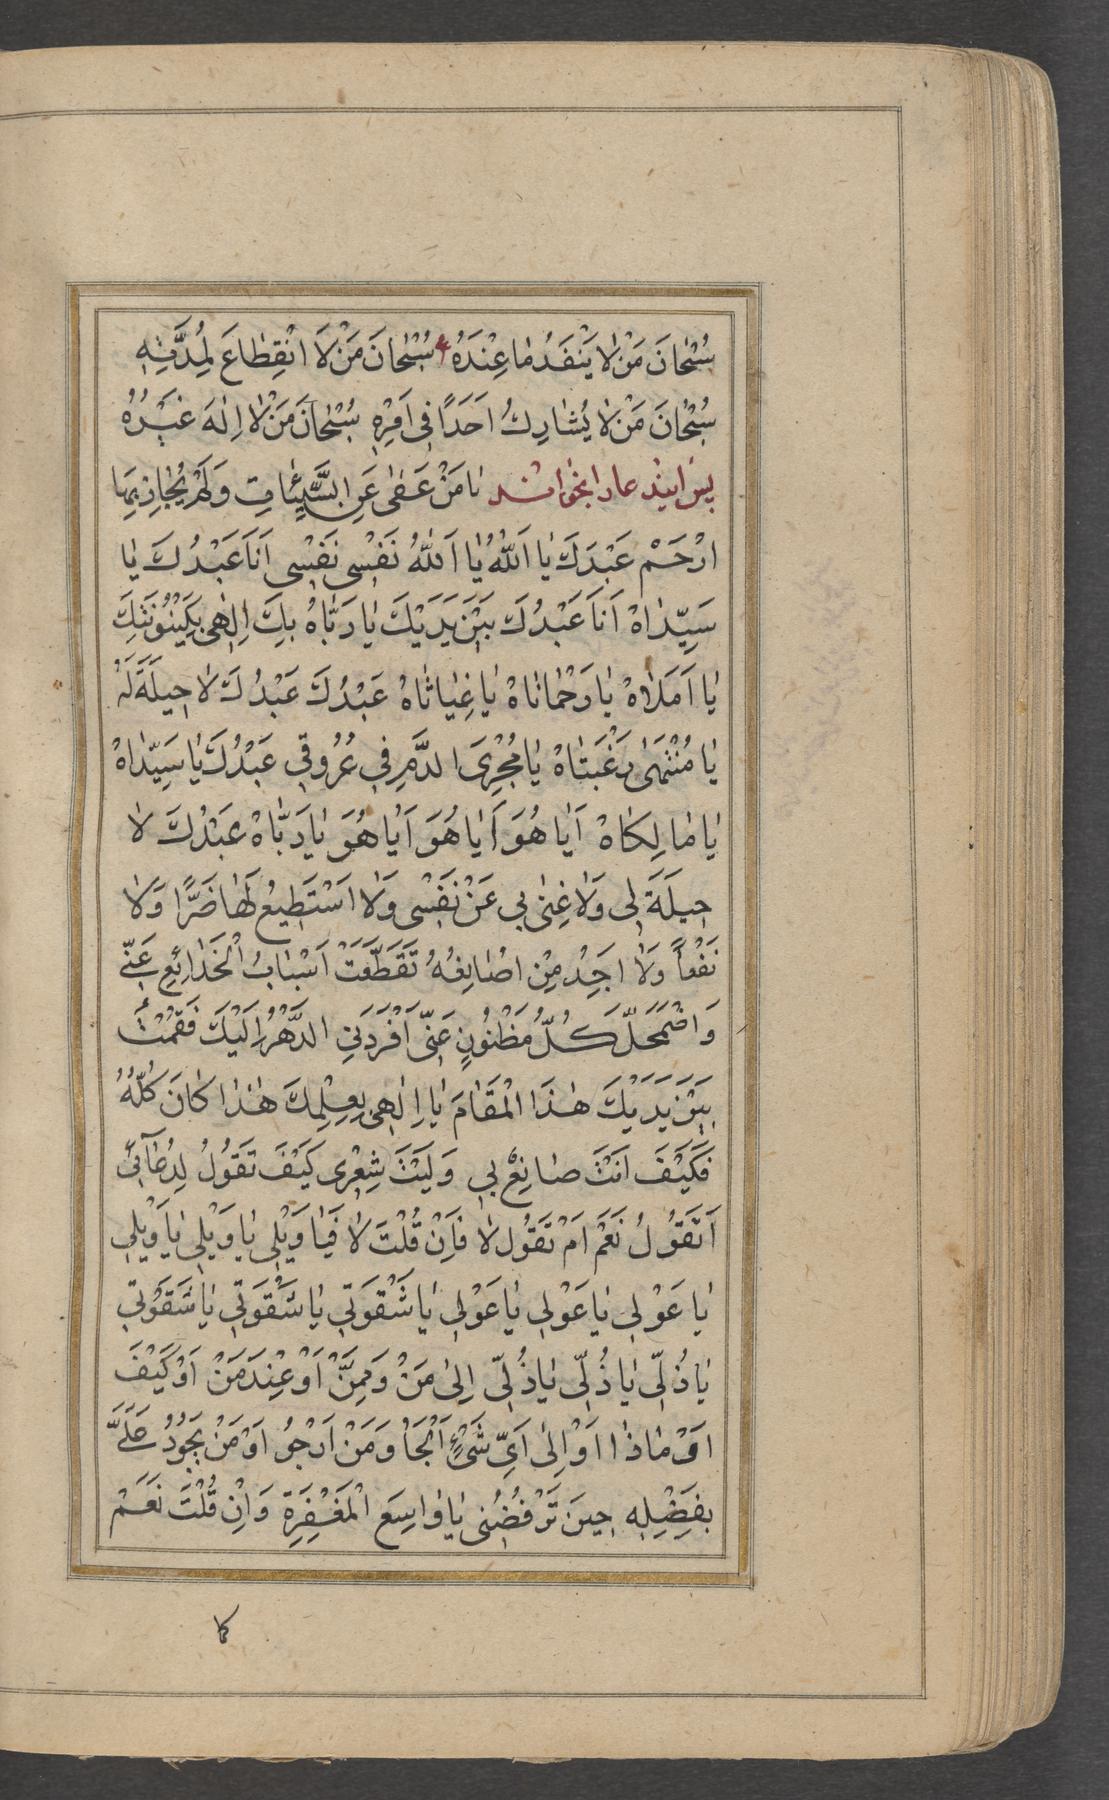 سُبْحٰانَ مَنْ لٰا يَنْفَدُ مٰا عِنْدَهُ سُبْحٰانَ مَنْ لَا انْقِطٰاعَ لِمُدَّتِهِ
سُبْحٰانَ مَنْ لٰا يُشٰارِكُ اَحَدًا فِى اَمْرِهِ سُبْحٰانَ مَنْ لٰا اِلٰهَ غَيْرُهُ
پس اين دعا را بخواند يٰا مَنْ عَفٰى عَنِ السَّيِّئٰاتِ وَلَمْ يُجٰازِ بِهَا
ارْحَمْ عَبْدَكَ يٰا اَللّٰهُ يٰا اَللّٰهُ نَفْسِى نَفْسِى اَنَا عَبْدُكَ يٰا
سَيِّدٰاهْ اَنَا عَبْدُكَ بَيْنَ يَدَيْكَ يٰا رَبّٰاهُ بِكَ اِلٰهِى بِكَيْنُونَتِكَ
يٰا اَمَلٰاهْ يٰا رَحْمٰانٰاهْ يٰا غِيٰاثٰاهْ عَبْدُكَ عَبْدُكَ لٰا حِيلَةَ لَهُ
يٰا مُنْتَهٰى رَغْبَتٰاهْ يٰا مُجْرِىَ الدَّمِ فِي عُرُوقِي عَبْدُكَ يٰا سَيِّدٰاهْ
يٰا مٰا لِكٰاهْ اَيٰا هُوَ اَيٰا هُوَ اَيٰا هُوَ يٰا رَبّٰاهْ عَبْدُكَ لٰا
حِيلَةَ لِى وَلٰا غِنٰى بِى عَنْ نَفْسِى وَلٰا اَسْتَطِيعُ لَهٰا ضَرًّا وَلٰا
نَفْعاً وَلٰا اَجِدُ مِنْ اُصٰانِعُهُ تَقَطَّعَتْ اَسْبٰابُ الْخَدٰائِعِ عَنّى
وَاضْمَحَلَّ كُلُّ مَظْنُونٍ عَنّى اَفْرَدَنِى الدَّهْرُ اِلَيْكَ فَقُمْتُ
بَيْنَ يَدَيْكَ هٰذَا الْمَقٰامَ يٰا اِلٰهِى بِعِلْمِكَ هٰذٰا كٰانَ كُلُّهُ
فَكَيْفَ اَنْتَ صٰانِعٌ بِى وَلَيْتَ شِعْرِى كَيْفَ تَقُولُ لِدُعٰآئى
اَتَقُولُ نَعَمْ اَمْ تَقُولُ لٰا فَاِنْ قُلْتَ لٰا فَيٰا وَيْلِى يٰا وَيْلِى يٰا وَيْلِى
يٰا عَوْلِى يٰا عَوْلِى يٰا عَوْلِى يٰا شَقْوَتِى يٰا شَقْوَتِى يٰا شَقْوَتِى
يٰا ذُلّى يٰا ذُلّى يٰا ذُلّى اِلٰى مَنْ وَمِمَّنْ اَوْ عِنْدَ مَنْ اَوْ كَيْفَ
اَوْ مٰاذٰا اَوْ اِلٰى اَىِّ شَىْءٍ اَلْجَأُ وَمَنْ اَرْجُو اَوْ مَنْ يَجُودُ عَلَىَّ
بِفَضْلِهِ حِينَ تَرْفُضُنِى يٰا وٰاسِعَ الْمَغْفِرَةِ وَاِنْ قُلْتَ نَعَمْ
كما